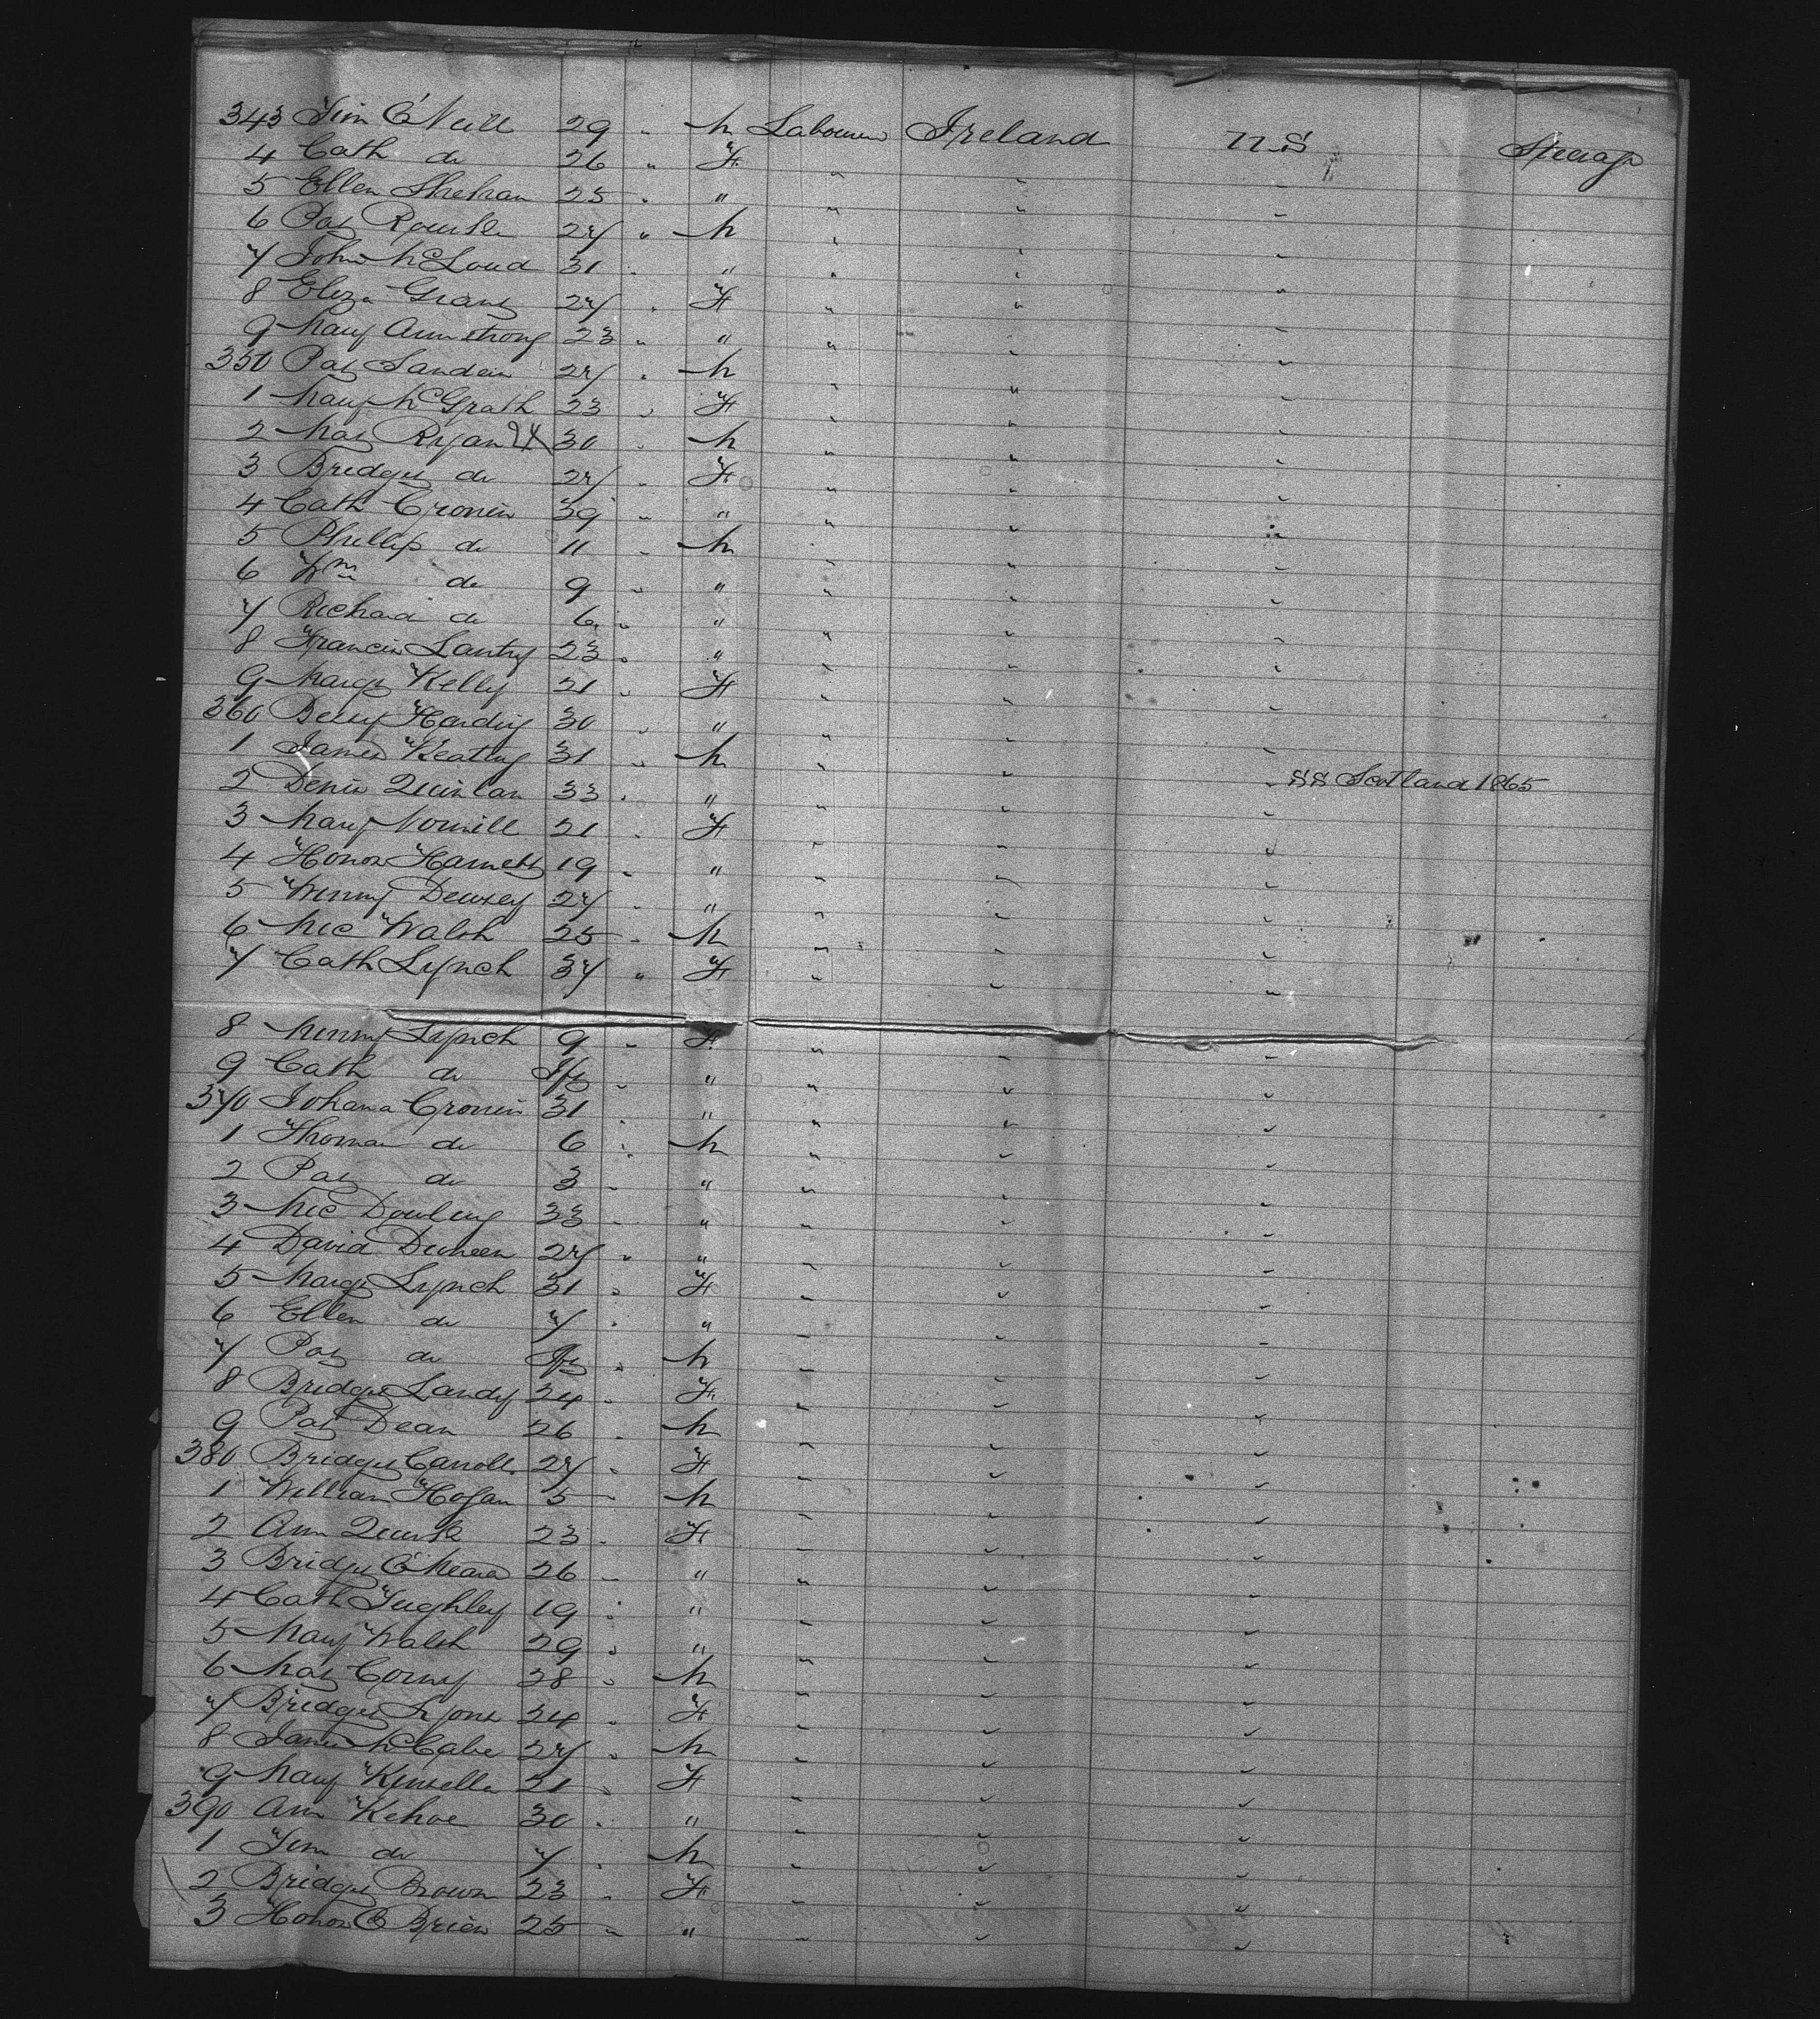 343 Tim O'Neill 29 " M Labourer Ireland U.S Steerage
4 Cath do 26 " F " " "
5 Ellen Shehan 25 " " " " "
6 Pat Rourke 27 " M " " "
7 John McLoud 31 " " " " "
8 Eliza Grant 27 " F " " "
9 Mary Armstrong 23 " " " " "
350 Pat 27 " M " " "
1 Mary McGrath 23 " F " " "
2 Mat Ryan 24 30 " M " " "
3 Bridget do 27 " F " " "
4 Cath Cronin 39 " " " " "
5 Phillip do 11 " M " " "
6 Wm do 9 " " " " "
7 Richard do 6 " " " " "
8 Francis Lantry 23 " " " " "
9 Margt Kelly 21 " F " " "
360 Betsy Harding 30 " " " " "
1 James Keating 31 " M " " "
2 Denis Quinlan 33 " " " " " SS Scotland 1865
3 Mary 21 " F " " "
4 Honor Harnett 19 " " " " "
5 Winny Dewsey 27 " " " " "
6 Mic Walsh 25 " M " " "
7 Cath Lynch 37 " F " " "
8 Minny Lynch 9 " F " " "
9 Cath do Inft " " " " "
370 Johana Cronin 31 " " " " "
1 Thomas do 6 " M " " "
2 Pat do 3 " " " " "
3 Mic Dowling 33 " " " " "
4 David Duneen 27 " " " " "
5 Margt Lynch 31 " F " " "
6 Ellen do 7 " " " " "
7 Pat do Inft " M " " "
8 Bridget Landy 24 " F " " "
9 Pat Dean 26 " M " " "
380 Bridget Carroll 27 " F " " "
1 William Hogan 5 " M " " "
2 Ann Quirk 23 " F " " "
3 Bridget O'Meara 26 " " " " "
4 Cath Tughley 19 " " " " "
5 Mary Walsh 29 " " " " "
6 Mat Corny 28 " M " " "
7 Bridget Lyons 24 " F " " "
8 James McCabe 27 " M " " "
9 Mary Kinsella 21 " F " " "
390 Ann Kehoe 30 " " " " "
1 Jim do 7 " M " " "
2 Bridget Brown 23 " F " " "
3 Honor O Brien 25 " " " " "